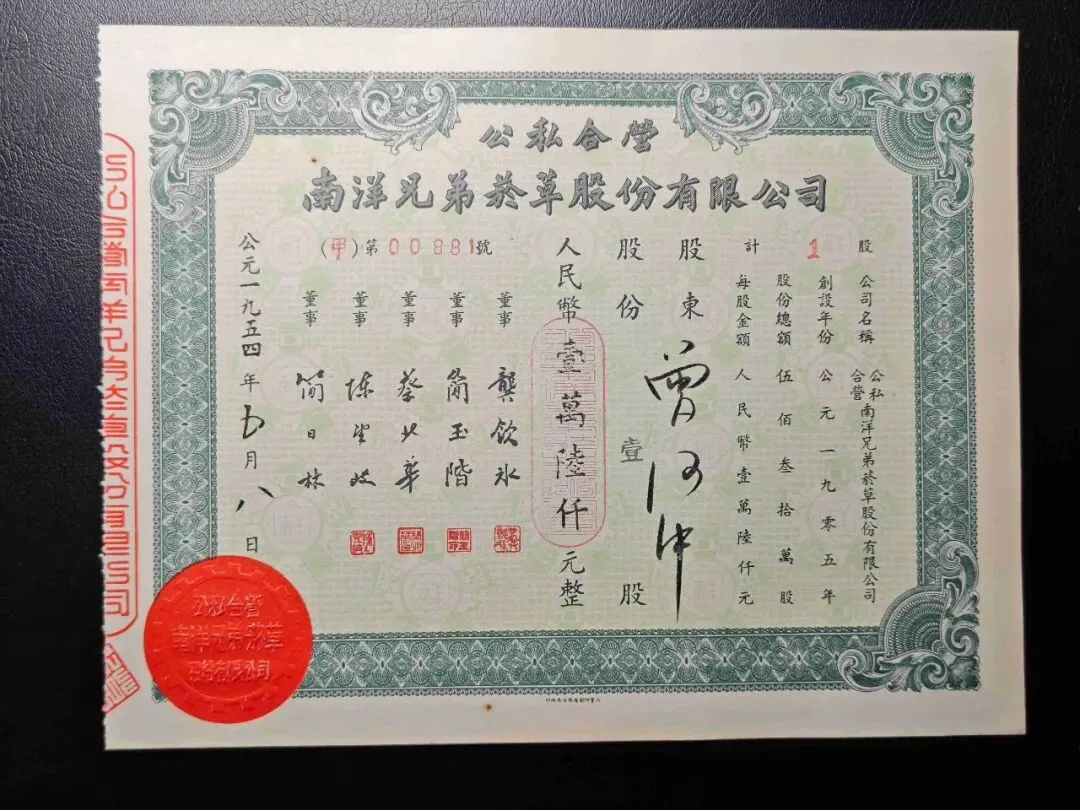 公私合營
南洋兄弟菸草股份有限公司
計1股
公司名稱 公私合營南洋兄弟菸草股份有限公司
創設年份 公元一九零五年
股份總額 伍佰叁拾萬股
每股金額 人民幣壹萬陸仟元
股東 曾河沖
股份 壹 股
人民幣壹萬陸仟元整
(甲)第00881號
董事 龔飲冰
董事 簡玉階
董事 蔡北華
董事 陳望岐
董事 簡日林
公元一九五四年九月八日
公私合營
南洋兄弟菸草
股份有限公司